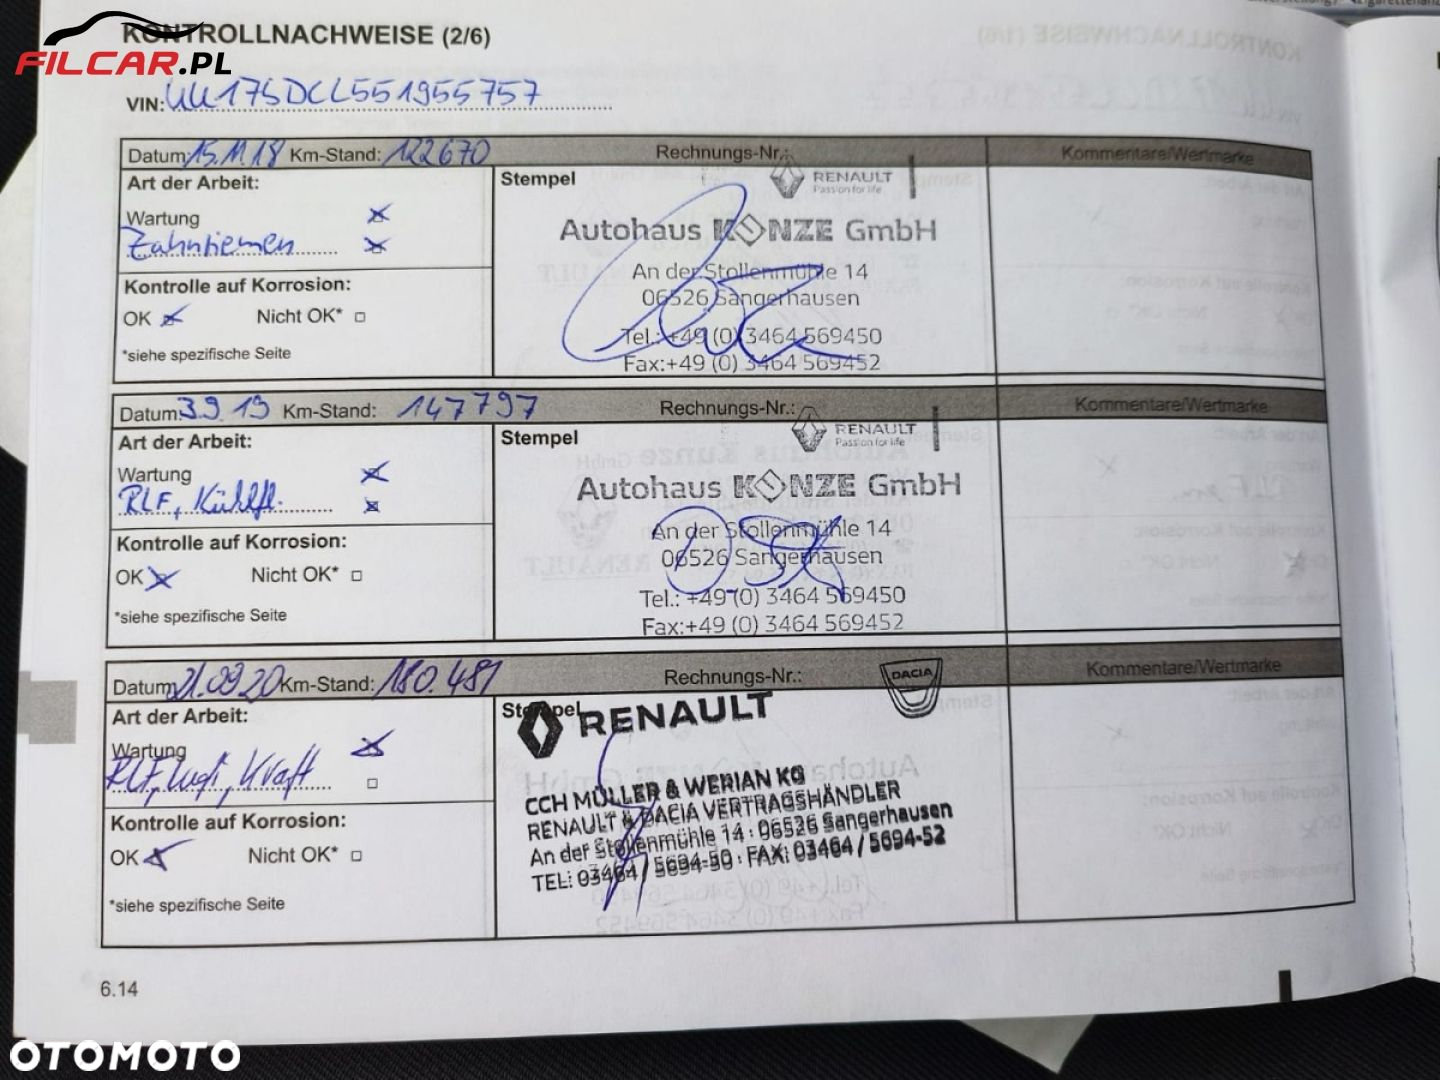 KONTROLLNACHWEISE (2/6)
FILCAR.PL
VIN: UU17SDCL551955757
Datum: 15.11.18 Km-Stand: 122670 Rechnungs-Nr.: Kommentare/Wertmarke
Art der Arbeit:
Wartung
Zahnriemen
Kontrolle auf Korrosion:
OK Nicht OK*
*siehe spezifische Seite
Stempel
RENAULT
Passion for life
Autohaus KUNZE GmbH
An der Stollenmühle 14
06526 Sangerhausen
Tel.: +49 (0) 3464 569450
Fax:+49 (0) 3464 569452
Datum: 3.9.19 Km-Stand: 147797 Rechnungs-Nr.: Kommentare/Wertmarke
Art der Arbeit:
Wartung
RLF, Kühlfl.
Kontrolle auf Korrosion:
OK Nicht OK*
*siehe spezifische Seite
Stempel
RENAULT
Passion for life
Autohaus KUNZE GmbH
An der Stollenmühle 14
06526 Sangerhausen
Tel.: +49 (0) 3464 569450
Fax:+49 (0) 3464 569452
Datum 21.09.20 Km-Stand: 180.481 Rechnungs-Nr.: Kommentare/Wertmarke
Art der Arbeit:
Wartung
RLF, Luft, Kraft
Kontrolle auf Korrosion:
OK Nicht OK*
*siehe spezifische Seite
Stempel
DACIA
RENAULT
CCH MÜLLER & WERIAN KG
RENAULT & DACIA VERTRAGSHÄNDLER
An der Stollenmühle 14 · 06526 Sangerhausen
TEL: 03464 / 5694-50 · FAX: 03464 / 5694-52
6.14
OTOMOTO